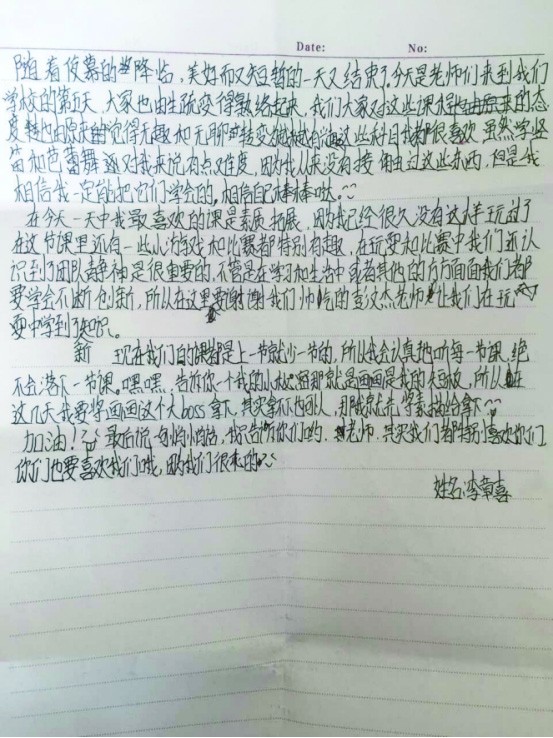 Date: No:
随着夜幕的降临，美好而又短暂的一天又结束了。今天是老师们来到我们
学校的第五天，大家也由生疏变得熟络起来，我们大家对这些课程由原来的态
度由原来的觉得无趣和无聊转变这些科目我都很喜欢，虽然学竖
笛和芭蕾舞这对我来说有点难度，因为我从来没有接触过这些东西，但是我
相信我一定能把它们学会的。相信自己棒棒哒。
在今天一天中我最喜欢的课是素质拓展，因为我已经很久没有这样玩过了
在这节课里还有一些小游戏和比赛都特别有趣，在玩耍和比赛中我们还认
识到了团队精神是很重要的，不管是在学习和生活中或者其他的方方面面我们都
要学会不断创新，所以在这里要谢谢我们帅气的彭汉杰老师让我们在玩
耍中学到了知识。
现在我们的课都是上一节就少一节的，所以我会认真地听每一节课，绝
不会落下一节课。嘿嘿，告诉你一个我的小秘密那就是画画是我的短板，所以在
这几天我要将画画这个大boss拿下，其实拿不也创人，那我就先将素描给拿下
加油！最后说句悄悄话，我只告诉你们哟，老师，其实我们都特别喜欢你们，
你们也要喜欢我们哦，因为我们很乖的
姓名：李章喜